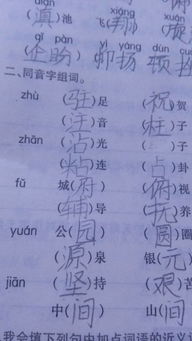 diān xiáng
(滇)池 飞(翔)
qǐ pàn yì yáng dùn cuò
(企盼) 抑扬 顿挫
二、同音字组词。
zhù (驻)足 (祝)贺
(注)音 (柱)子
zhān (沾)光 (毡)子
(粘)连 (占)卦
fǔ 城(府) (俯)视
(辅)导 (抚)养
yuán 公(园) (圆)圈
(源)泉 银(元)
jiān (坚)持 (艰)苦
中(间) 山(间)
我会填下列句中加点词语的近义